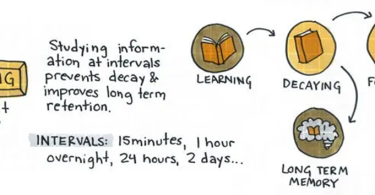 NG
Studying inform-
ation at intervals
prevents decay &
improves long term
retention.
INTERVALS: 15minutes, 1 hour
overnight, 24 hours, 2 days...
LEARNING
DECAYING
F
LONG TERM
MEMORY